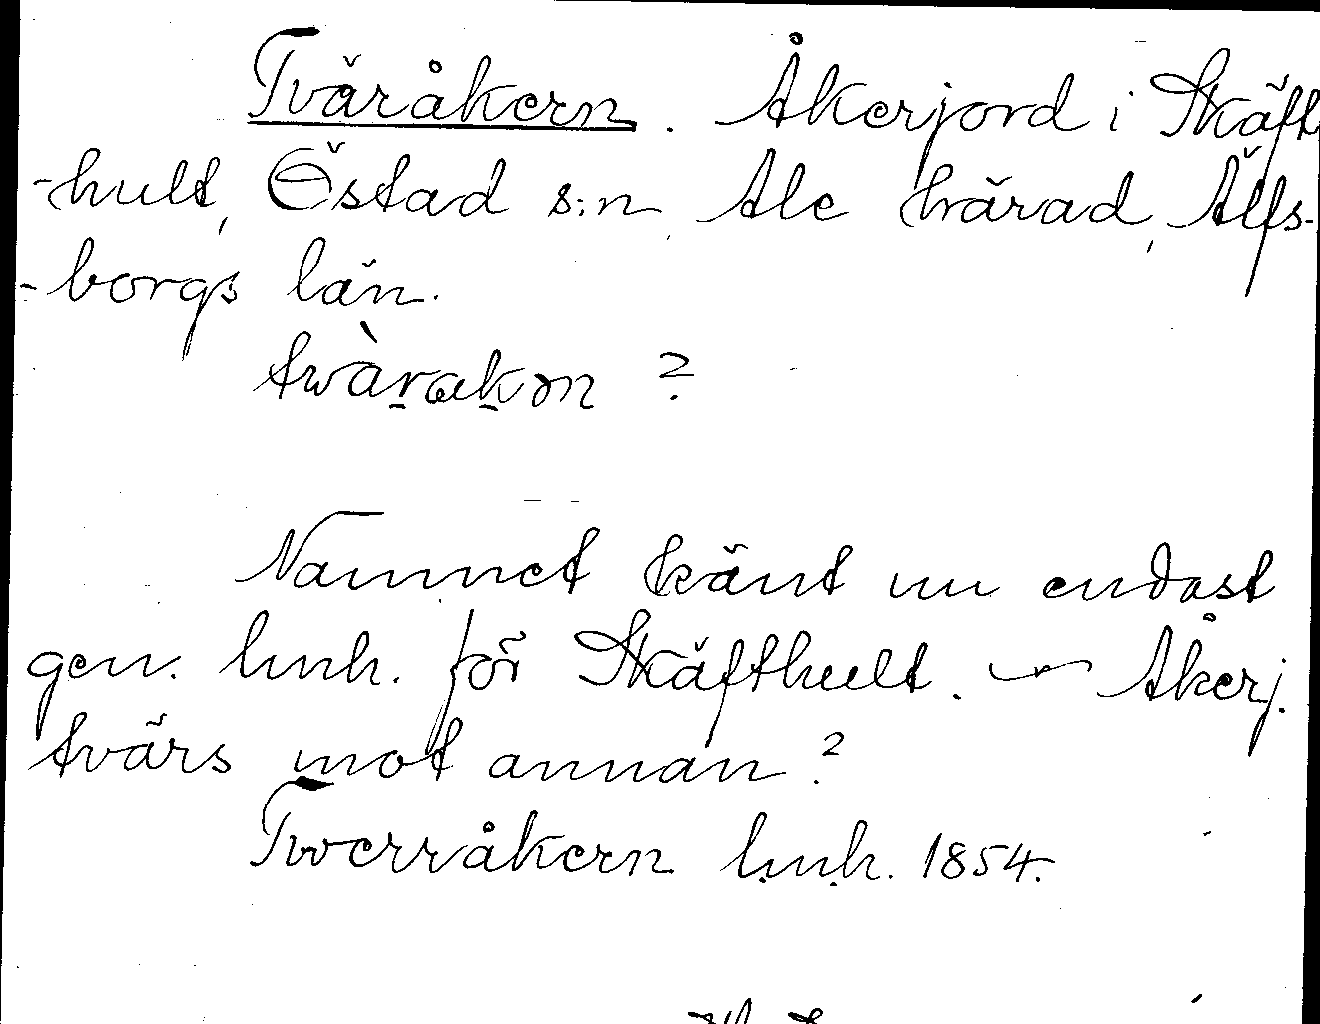 Tväråkern. Åkerjord i Skäft
-hult, Östad s:n, Ale härad, Älfs-
-borgs län.
twàrakən ?
Namnet känt nu endast
gen. lmh. för Skäfthult. — Åkerj.
tvärs mot annan?
Twerråkern lmh. 1854.